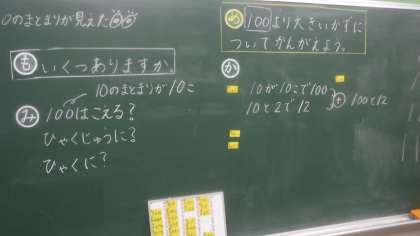 0のまとまりが見えた
も いくつありますか。
10のまとまりが10こ
み 100はこえる?
ひゃくじゅうに?
ひゃくに?
め 100より大きいかずに
ついてかんがえよう。
か
10が10こで100
10と2で12
+ 100と12